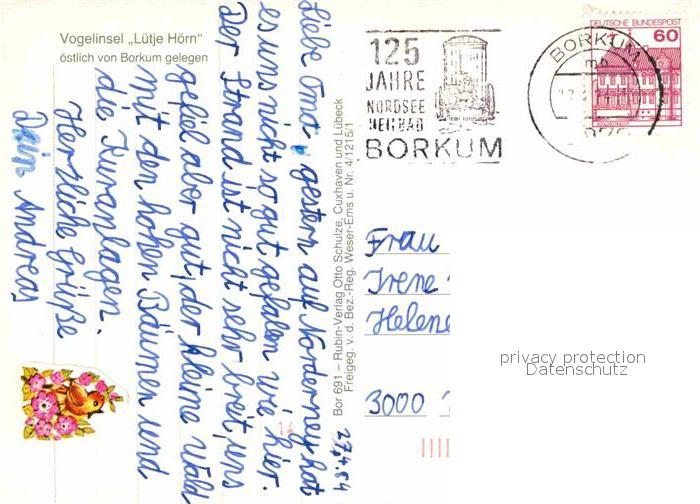 Vogelinsel „Lütje Hörn“
östlich von Borkum gelegen
27.4.84
Liebe Oma, gestern auf Norderney hat
es uns nicht so gut gefalen wie hier.
Der Strand ist nicht sehr breit, uns
gefiel aber gut, der kleine Wald
mit den hohen Bäumen und
die Kuranlagen.
Herzliche Grüße
Dein Andreas
Bor 691 – Rubin-Verlag Otto Schulze, Cuxhaven und Lübeck
Freigeg. v. d. Bez.-Reg. Weser-Ems u. Nr. 4/1215/1
125
JAHRE
NORDSEE
HEILBAD
BORKUM
BORKUM
DEUTSCHE BUNDESPOST
60
Frau
Irene
Helene
3000
privacy protection
Datenschutz